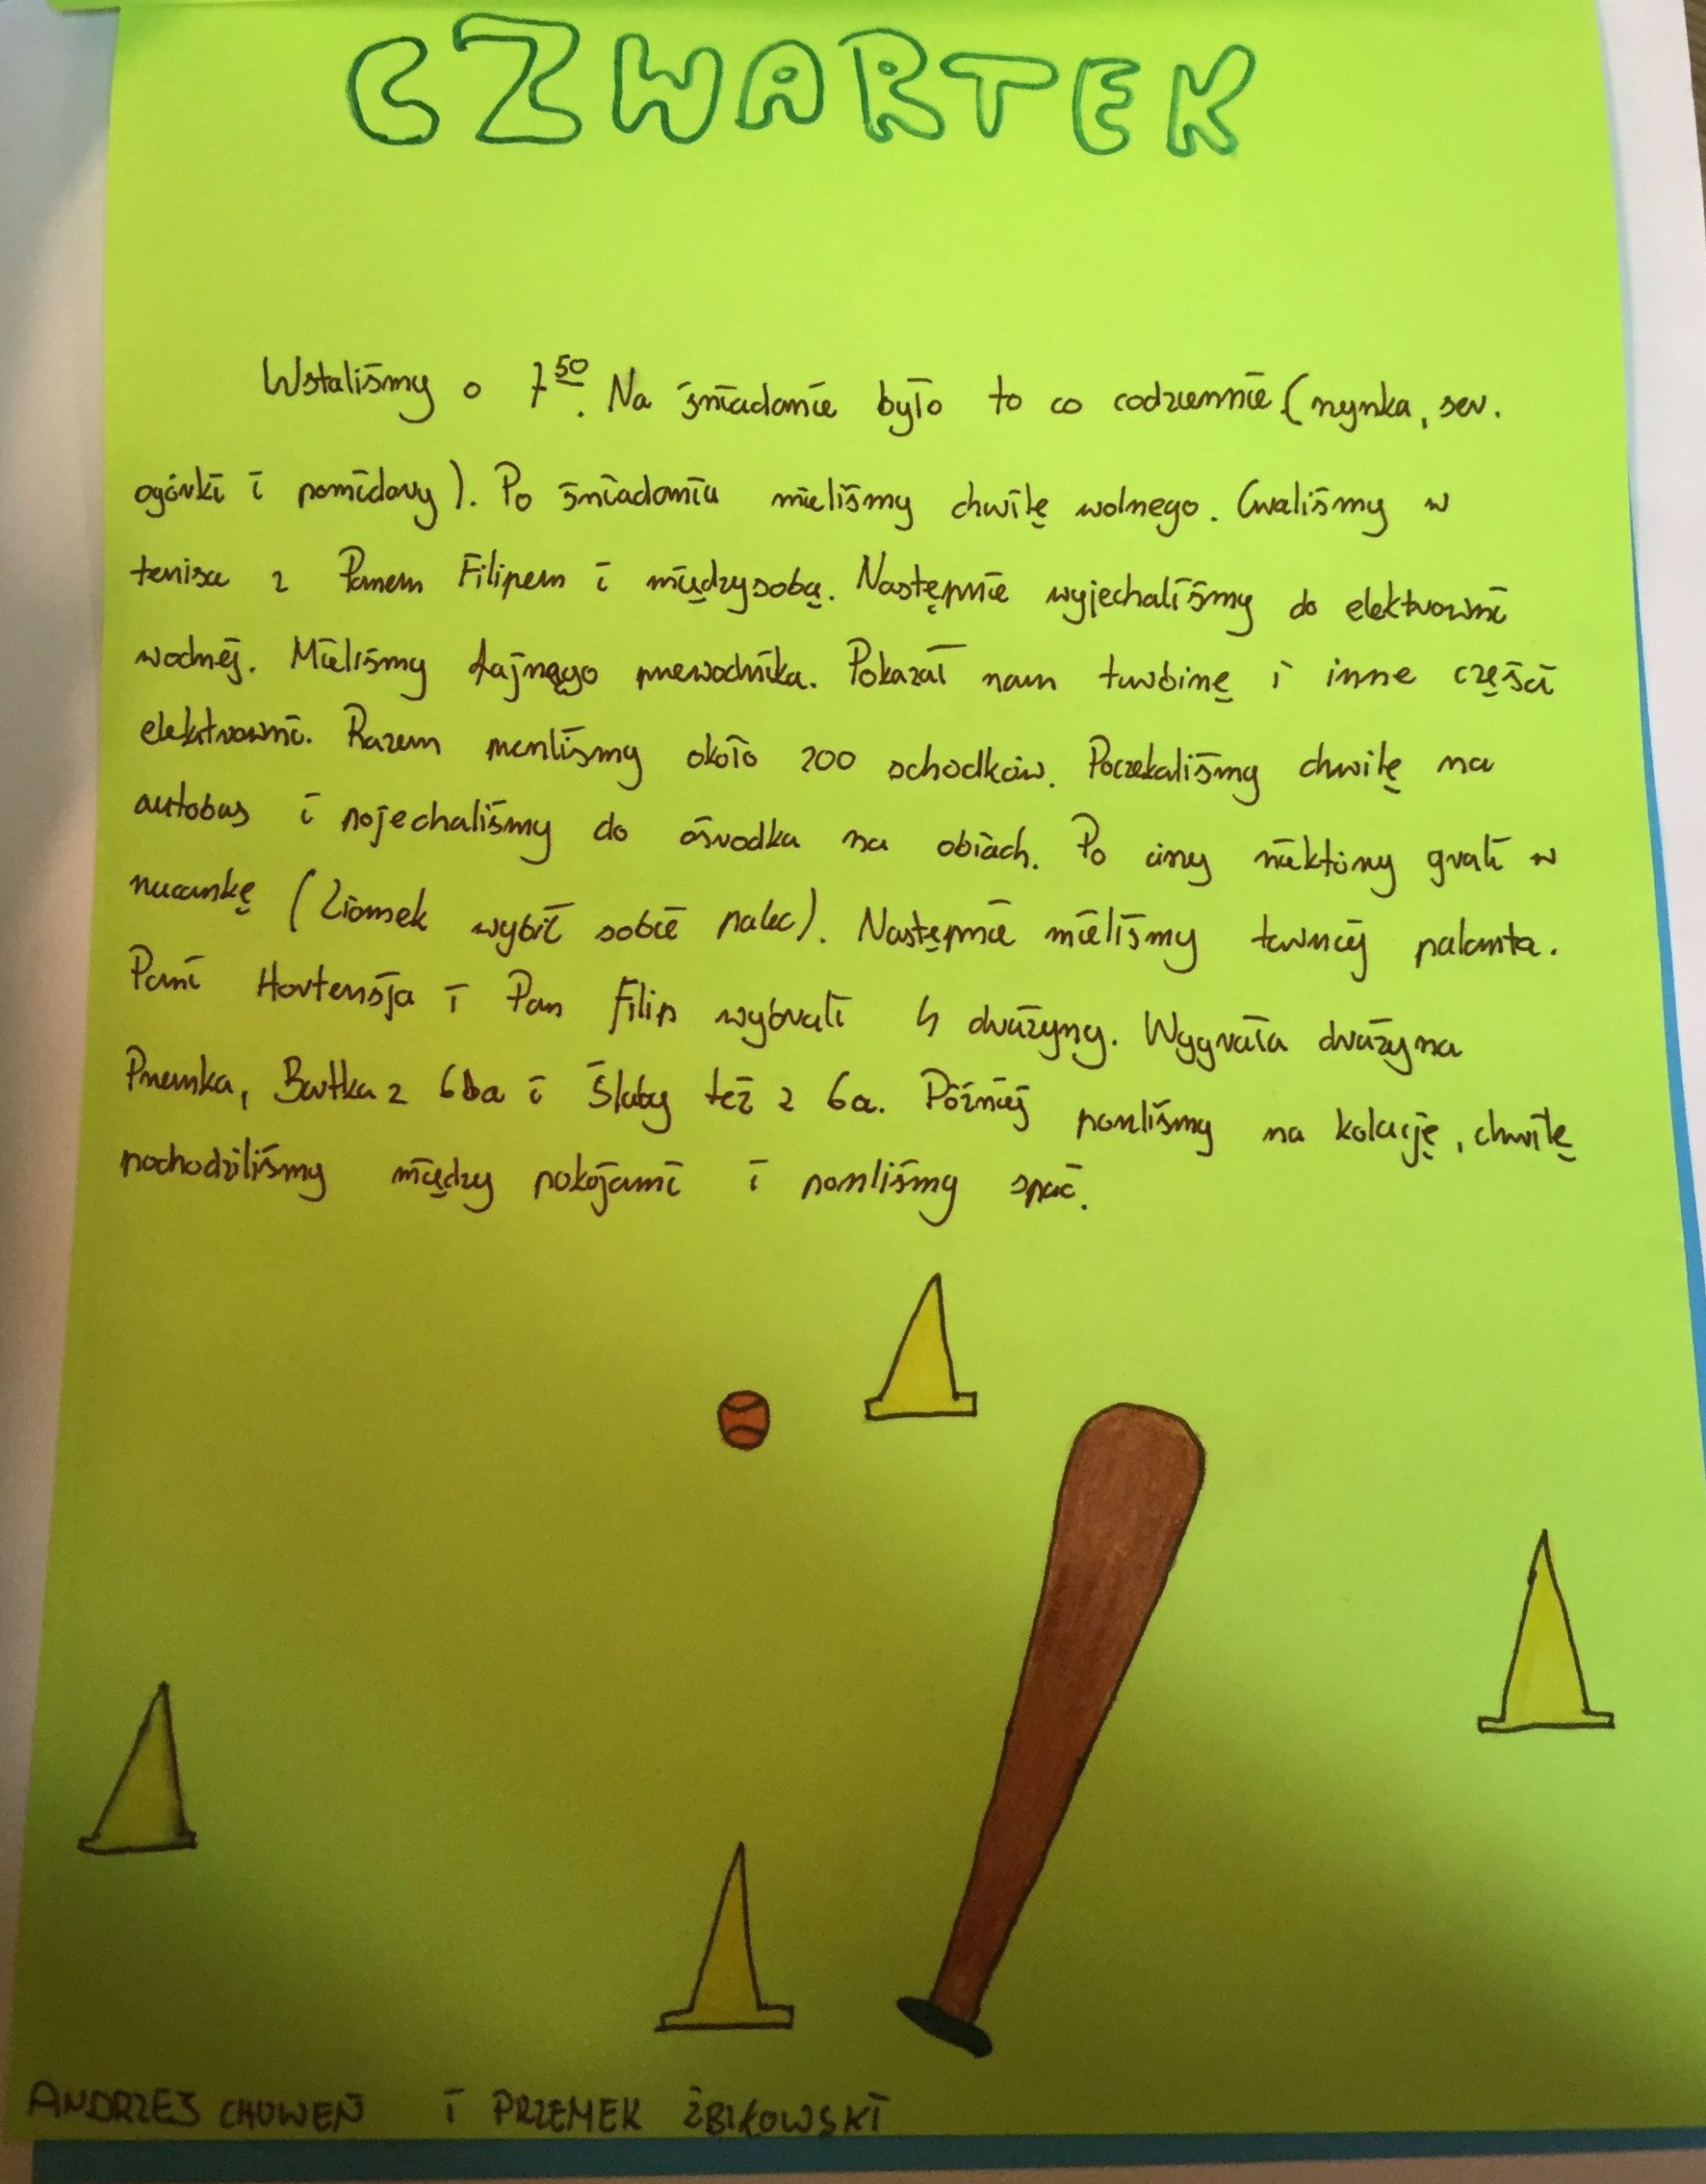 CZWARTEK
Wstaliśmy o 7⁵⁰. Na śniadanie było to co codziennie (szynka, ser.
ogórki i pomidory). Po śniadaniu mieliśmy chwilę wolnego. Graliśmy w
tenisa z Panem Filipem i międzysobą. Następnie wyjechaliśmy do elektrowni
wodnej. Mieliśmy fajnego przewodnika. Pokazał nam turbinę i inne części
elektrowni. Razem przeszliśmy około 200 schodków. Poczekaliśmy chwilę na
autobus i pojechaliśmy do ośrodka na obiach. Po ciszy niektórzy grali w
rzucankę (Ziomek wybił sobie palec). Następnie mieliśmy turniej palanta.
Pani Hortensja i Pan Filip wybrali 4 drużyny. Wygrała drużyna
Przemka, Bartka z 6ba i Słaby też z 6a. Później poszliśmy na kolację, chwilę
pochodziliśmy między pokojami i poszliśmy spać.
ANDRZEJ i PRZEMEK ŻBIKOWSKI